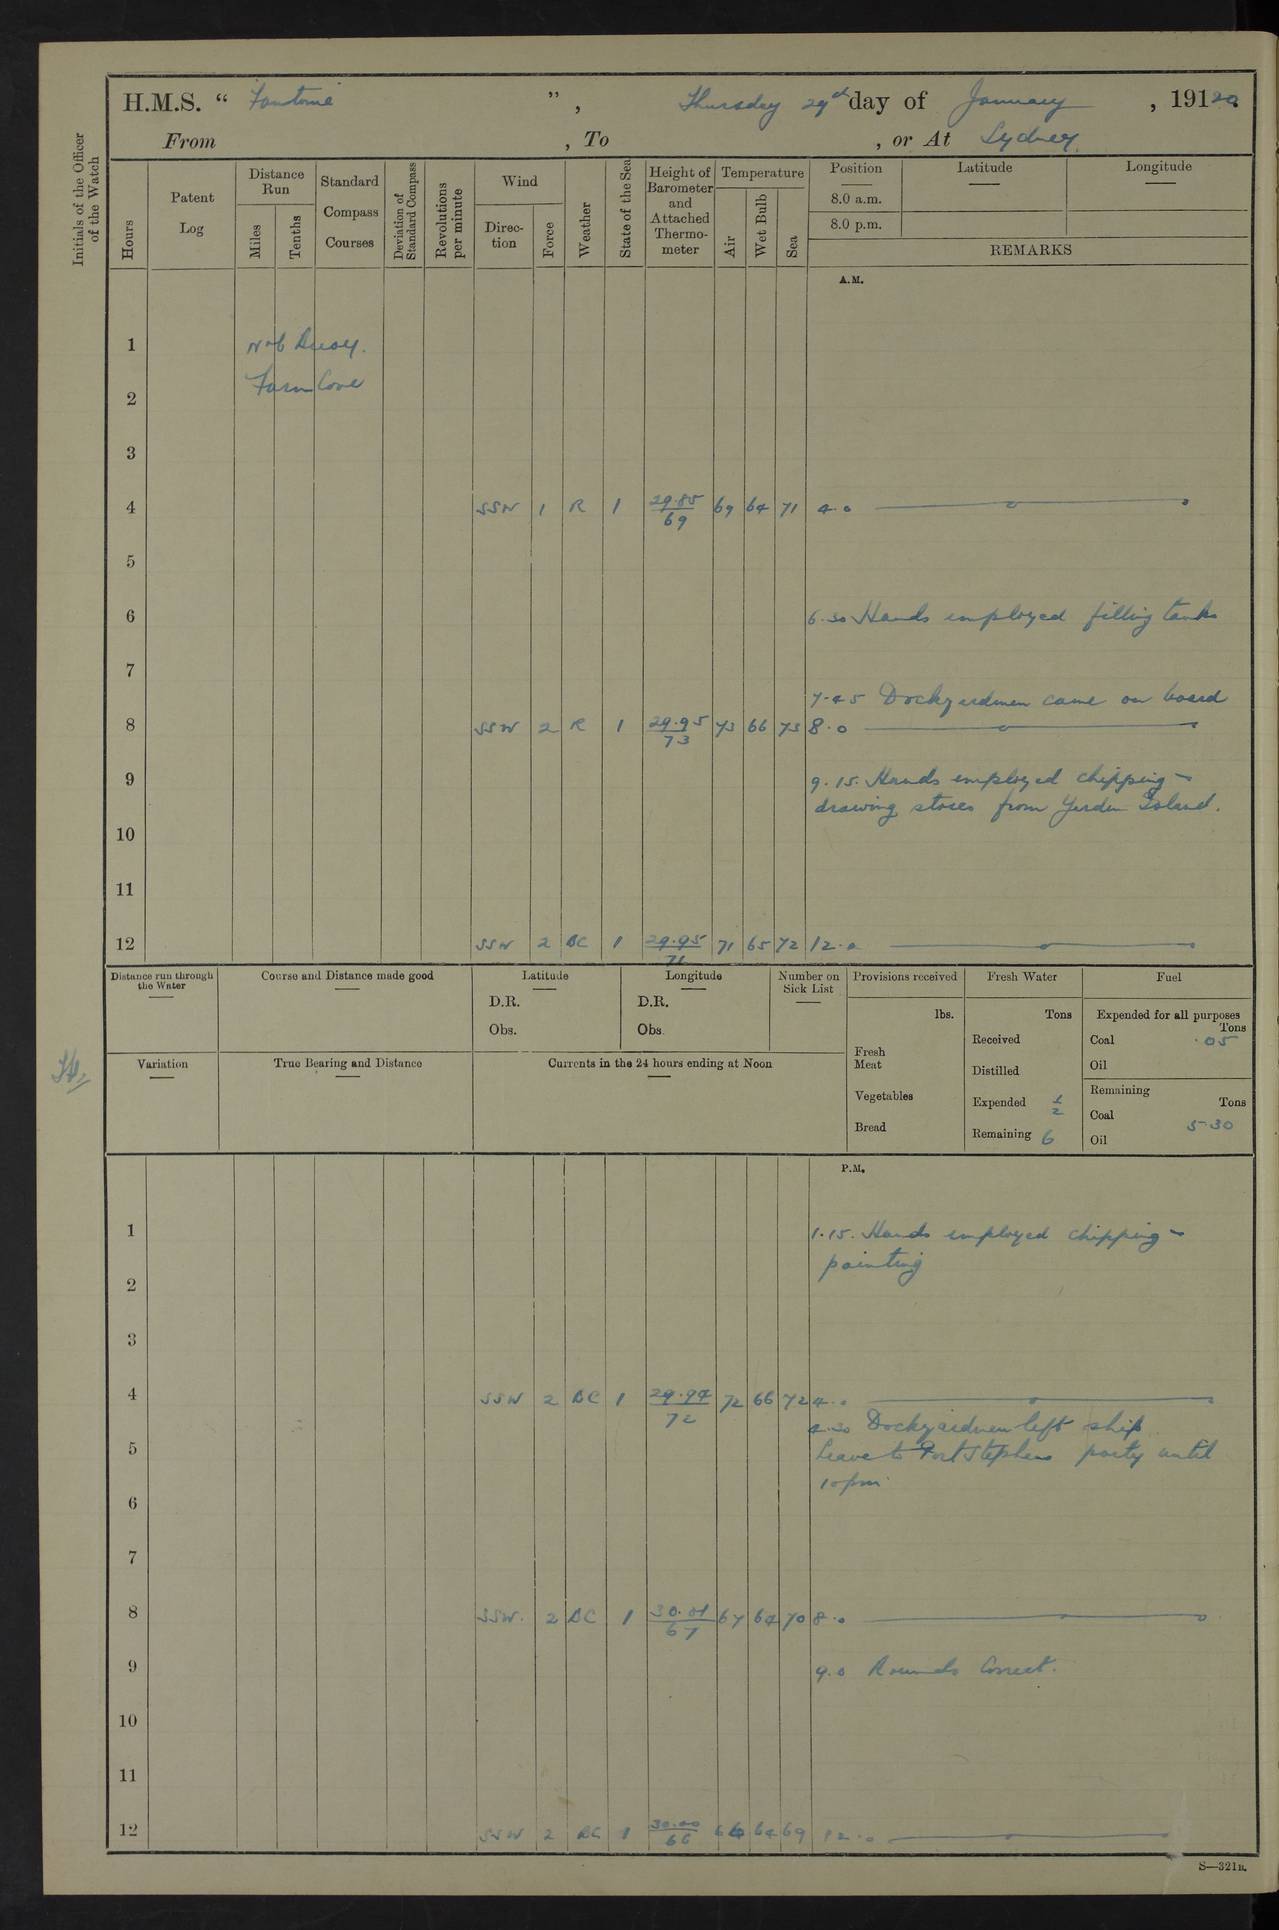 H.M.S. “ Fantome ”, Thursday 29th day of January, 19120
From , To , or At Sydney.
Initials of the Officer of the Watch
Hours
Patent Log
Distance Run
Miles
Tenths
Standard Compass Courses
Deviation of Standard Compass
Revolutions per minute
Wind
Direction
Force
Weather
State of the Sea
Height of Barometer and Attached Thermometer
Temperature
Air
Wet Bulb
Sea
Position Latitude Longitude
8.0 a.m.
8.0 p.m.
REMARKS
A.M.
1 No 6 Buoy.
Farm Cove
2
3
4 SSW 1 R 1 29.85/69 69 64 71 4.0
5
6 6.30 Hands employed filling tanks
7
7.45 Dockyardmen came on board
8 SSW 2 R 1 29.95/73 73 66 73 8.0
9 9.15. Hands employed chipping -
drawing stores from Garden Island.
10
11
12 SSW 2 BC 1 29.95/71 71 65 72 12.0
Distance run through the Water
Course and Distance made good
Latitude
D.R.
Obs.
Longitude
D.R.
Obs.
Number on Sick List
Provisions received
lbs.
Fresh Meat
Vegetables
Bread
Fresh Water
Tons
Received
Distilled
Expended 1/2
Remaining 6
Fuel
Expended for all purposes
Tons
Coal .05
Oil
Remaining
Tons
Coal 5.30
Oil
Variation
True Bearing and Distance
Currents in the 24 hours ending at Noon
P.M.
1 1.15. Hands employed chipping -
painting
2
3
4 SSW 2 BC 1 29.94/72 72 66 72 4.0
4.30 Dockyardmen left ship
5 Leave to Port Stephens party until
10pm
6
7
8 SSW. 2 BC 1 30.01/67 67 64 70 8.0
9 9.0 Rounds Correct.
10
11
12 SSW 2 BC 1 30.00/66 66 64 69 12.0
S—321B.